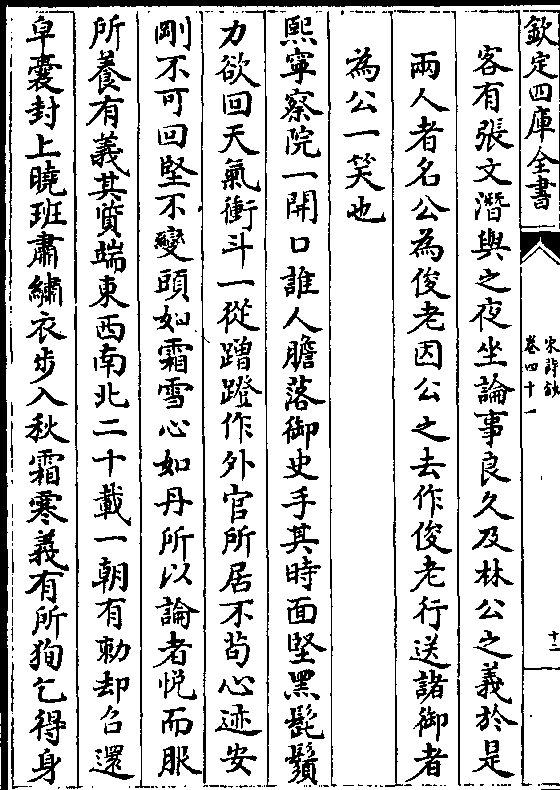 欽定四庫全書
宋詩鈔
卷四十一
十二
客有張文潛與之夜坐論事良久及林公之義於是
兩人者名公為俊老因公之去作俊老行送諸御者
為公一笑也
熙寧察院一開口誰人膽落御史手其時面堅黑髭鬚
力欲回天氣衝斗一從蹭蹬作外官所居不茍心迹安
剛不可回堅不變頭如霜雪心如丹所以論者悅而服
所養有義其質端東西南北二十載一朝有勅却召還
皁囊封上曉班肅繡衣步入秋霜寒義有所狥乞得身